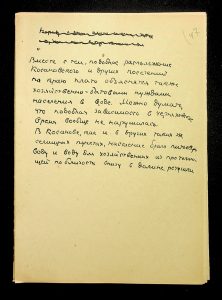 147
Вместе с тем, подобное расположение
Косановского и других поселений
на краю плато объясняется также
хозяйственно-бытовыми нуждами
населения в воде. Можно думать,
что подобная зависимость в черняховское
время вообще не нарушилась.
В Косанове, так и в других таких же
селищах пунктах, население брало питьевую
воду и воду для хозяйственных из протекаю-
щей поблизости внизу в долине речушки